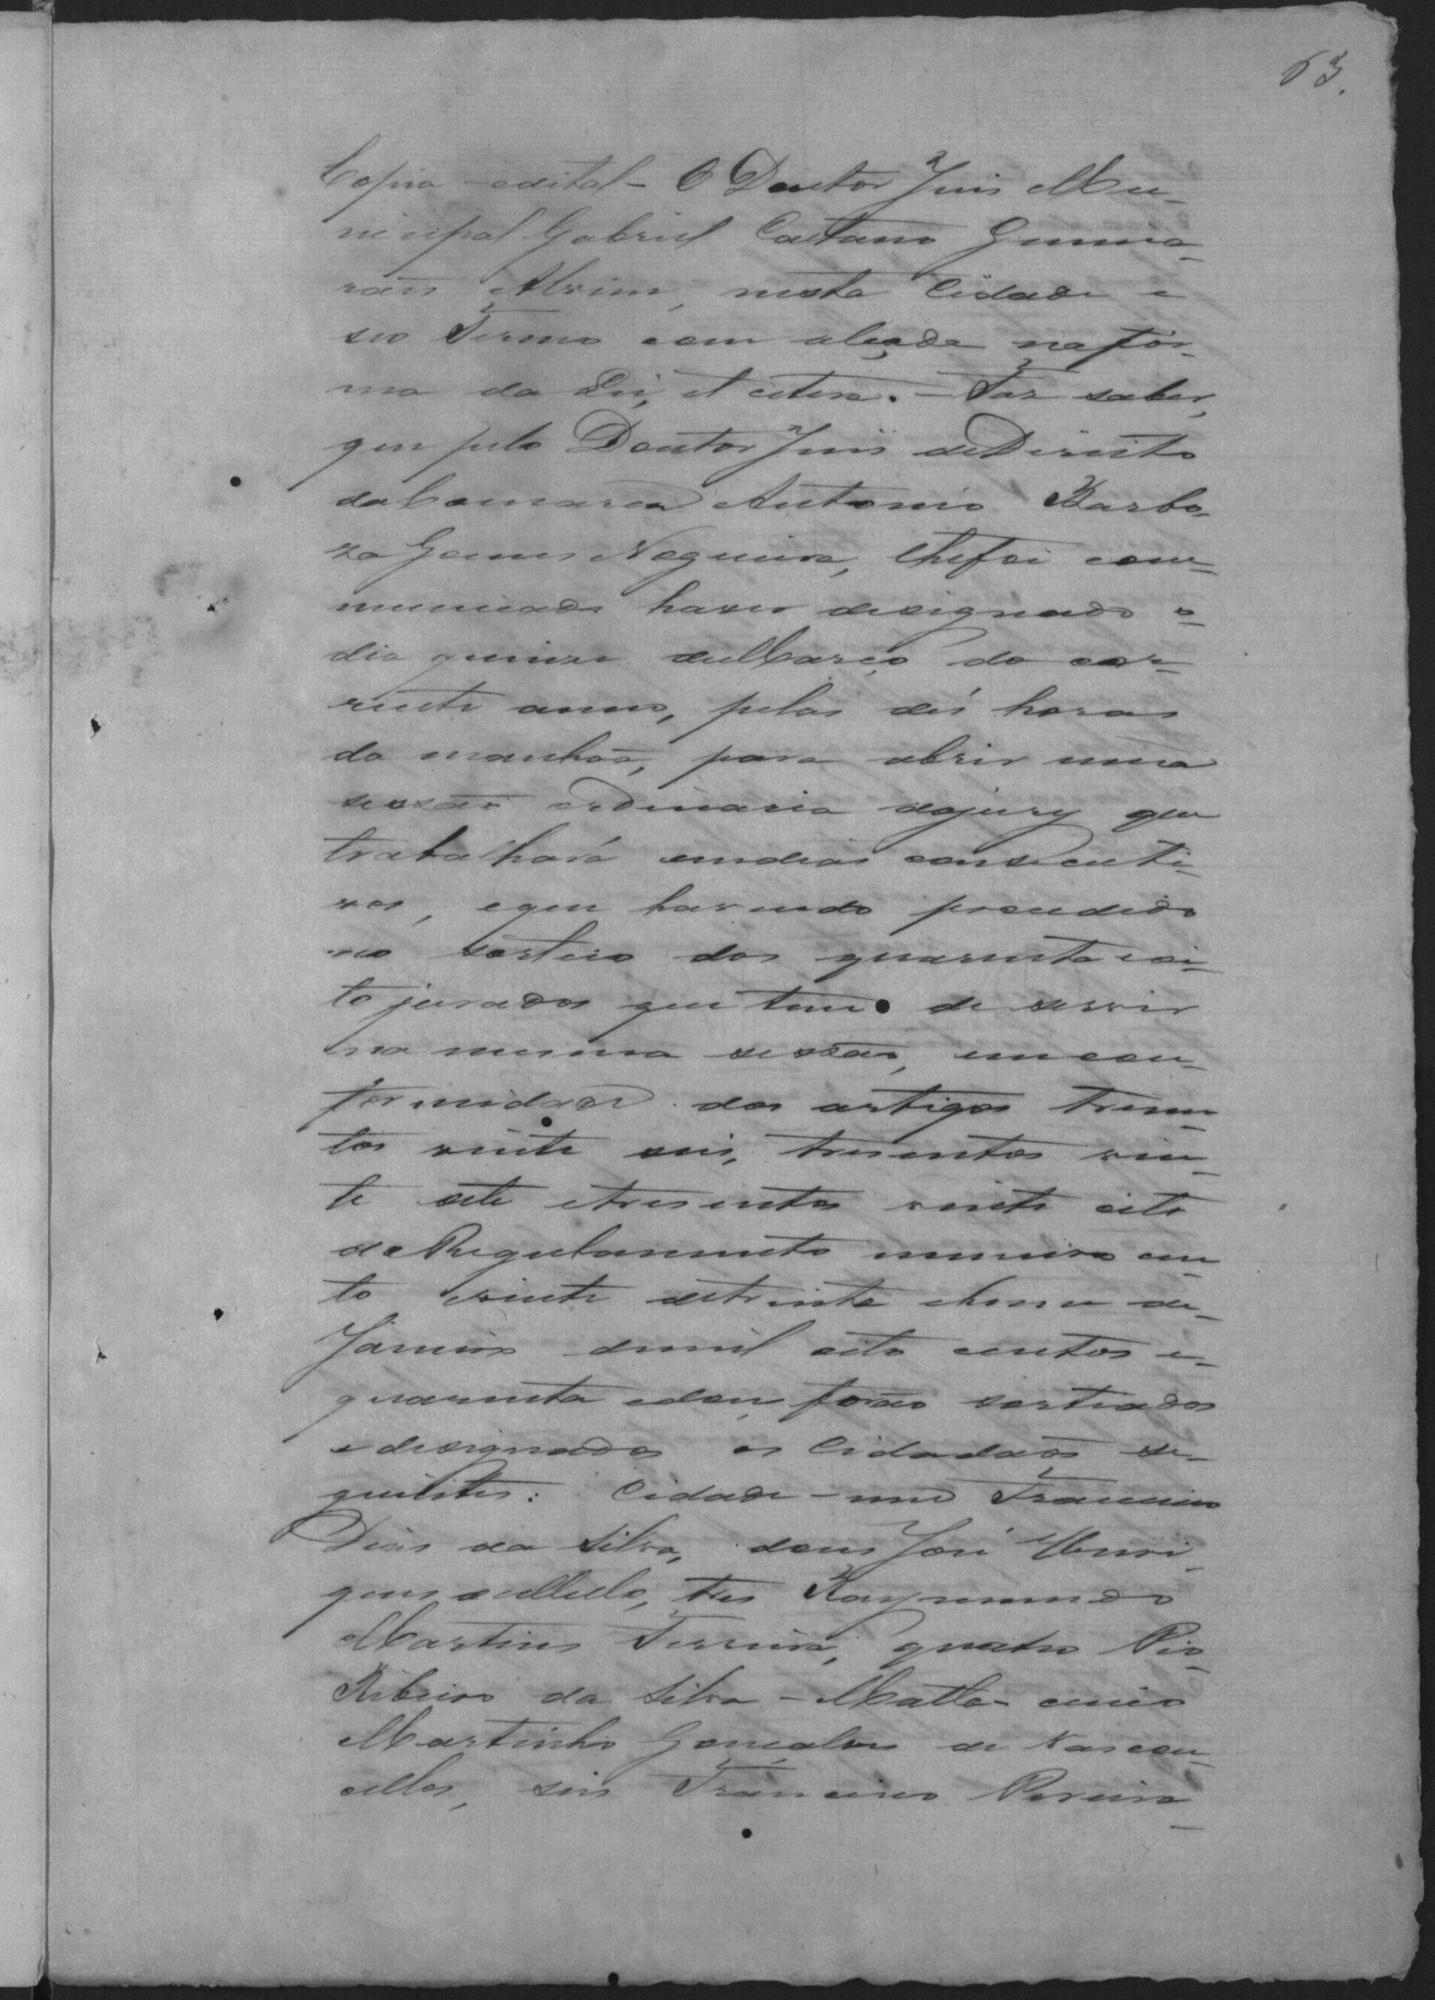 63.
Copia – edital – O Doutor Juis Mu-
nicipal Gabriel Caetano Guima-
rães Alvim, nesta Cidade e
seo Termo com alçada na fór-
ma da Lei, et cetera. – Faz saber,
que pelo Doutor Juis de Direito
da Comarca Antonio Barbo-
za Gomes Nogueira, lhe foi com-
municado haver designado o
dia quinze de Março do cor-
rente anno, pelas dés horas
da manhãa, para abrir uma
sessão ordinaria do jury que
trabalhará em dias consecuti-
vos, e que havendo procedido
ao sorteio dos quarenta e oi-
to jurados que tem de servir
na mesma sessão, em con-
formidade dos artigos tresen-
tos vinte seis, tresentos vin-
te sete e tresentos vinte oito
do Regulamento numero cen-
to vinte de trinta e hum de
Janeiro de mil oito centos e
quarenta e dous, forão sorteados
e designados os Cidadãos se-
guintes: Cidade – um Francisco
Dias da Silva, dous José Henri-
ques de Mello, tres Raymundo
Martins Ferreira, quatro Pio
Ribeiro da Silva – Matta – cinco
Martinho Gonçalves de Vascon-
cellos, seis Francisco Pereira